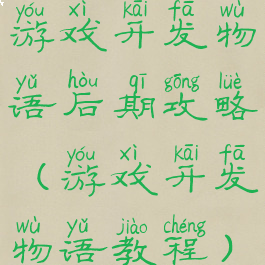 yóu xì kāi fā wù
游戏开发物
yǔ hòu qī gōng lüè
语后期攻略
yóu xì kāi fā
（游戏开发
wù yǔ jiào chéng
物语教程）